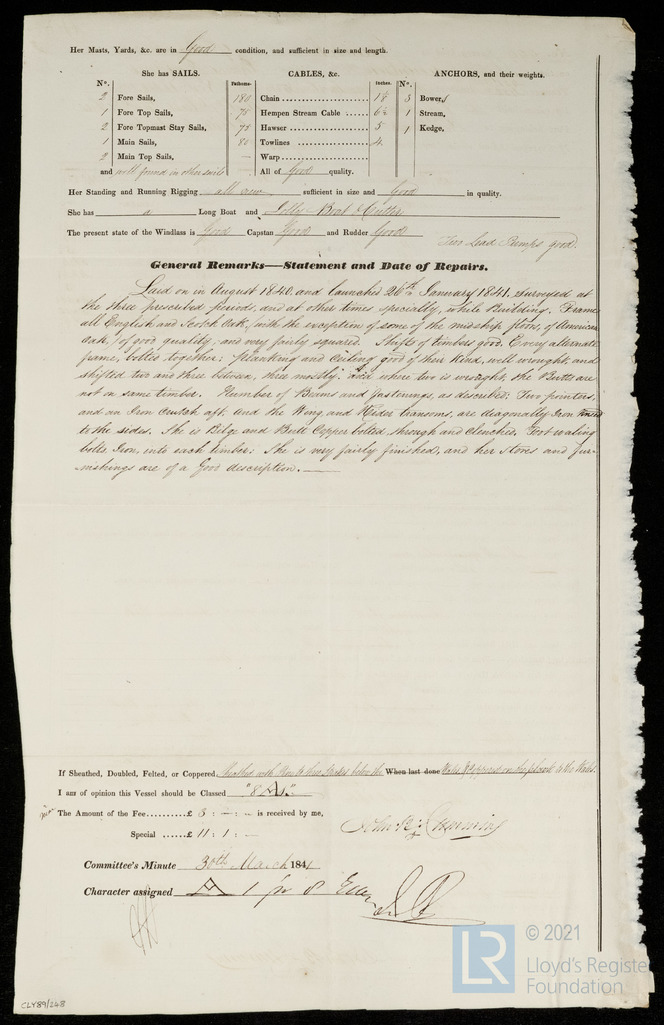 Her Masts, Yards, &c. are in Good condition, and sufficient in size and length.
She has SAILS. CABLES, &c. ANCHORS, and their weights.
No. Fathoms. Inches. No.
2 Fore Sails, 180 Chain 1 1/8 3 Bowers
1 Fore Top Sails, 75 Hempen Stream Cable 6½ 1 Stream,
2 Fore Topmast Stay Sails, 75 Hawser 5 1 Kedge,
1 Main Sails, 80 Towlines 4
2 Main Top Sails, — Warp —
and well found in other sails All of Good quality.
Her Standing and Running Rigging all new sufficient in size and Good in quality.
She has a Long Boat and Jolly Boat & Cutter
The present state of the Windlass is Good Capstan Good and Rudder Good Two Lead Pumps good.
General Remarks—Statement and Date of Repairs.
Laid on in August 1840. and launched 26th January 1841. Surveyed at
the three prescribed periods, and at other times specially, while Building. Frame
all English and Scotch Oak, (with the exception of some of the midship floors, of American
Oak,) of good quality, and very fairly squared. Shifts of timbers good. Every alternate
frame, bolted together: planking and Ceiling good of their kind, well wrought, and
shifted two and three between, three mostly. and where two is wrought, the Butts are
not on same timber. Number of Beams and fastenings, as described; Two pointers,
and an Iron Crutch aft. And the Wing and transoms, are diagonally Iron kneed
to the sides. She is Bilge and Butt Copper bolted, through and Clenched. Foot waling
bolts, Iron, into each timber: She is very fairly finished, and her stores and fur-
nishings are of a Good description.
If Sheathed, Doubled, Felted, or Coppered Sheathed with below the When last done Wales & Coppered on the plank to the Wales.
I am of opinion this Vessel should be Classed "8 A 1."
The Amount of the Fee £ 3 : — : — is received by me,
Special £ 11 : 1 : —
John
Committee's Minute 30th March 1841
Character assigned A 1 for 8
© 2021
LR Lloyd's Register
Foundation
CLY89/248